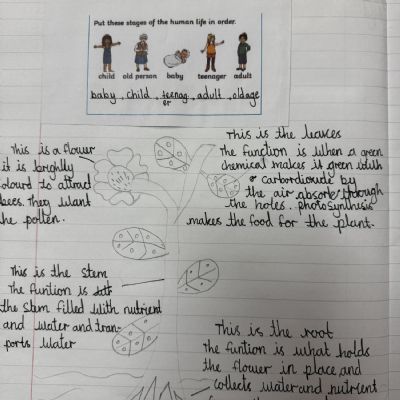 Put these stages of the human life in order.
child old person baby teenager adult
baby, child, teenag
er, adult, oldage
This is a flower
it is brightly
colourd to attract
bees. They want
the pollen.
This is the leaves
The function is when a green
chemical makes it green with
carbordioxide by
the air absorb through
the holes. photosynthesis
makes the food for the plant.
This is the stem
The funtion is
the stem filled with nutrient
and water and tran-
ports water
This is the root
The funtion is what holds
the flower in place, and
collects water and nutrient